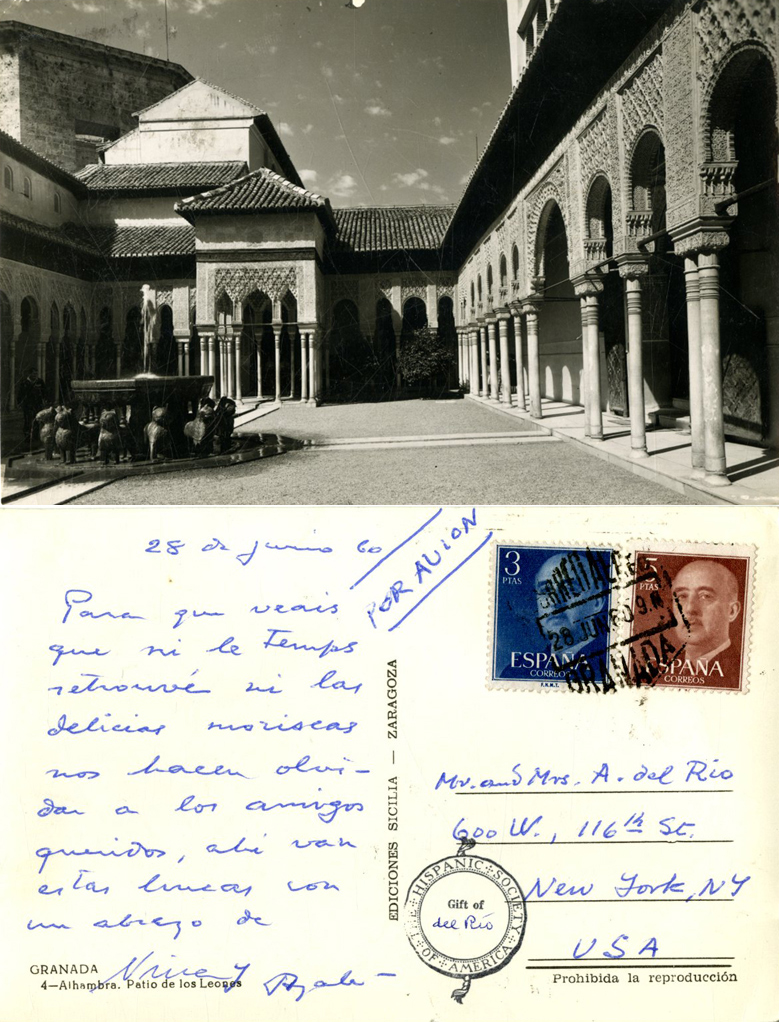 28 de junio 60
POR AVION
Para que veais
que ni le Temps
retrouvé ni las
delicias moriscas
nos hacen olvi-
dar a los amigos
queridos, ahi van
estas lineas con
un abrazo de
Nina y Ayala
GRANADA
4—Alhambra. Patio de los Leones
EDICIONES SICILIA — ZARAGOZA
3
PTAS
ESPAÑA
CORREOS
F.N.M.T.
5
PTAS
ESPAÑA
CORREOS
CORREO AEREO
28 JUN 60 9.M
GRANADA
Mr. and Mrs. A. del Rio
600 W., 116th St.
New York, NY
USA
THE HISPANIC SOCIETY
OF AMERICA
Gift of
del Río
Prohibida la reproducción